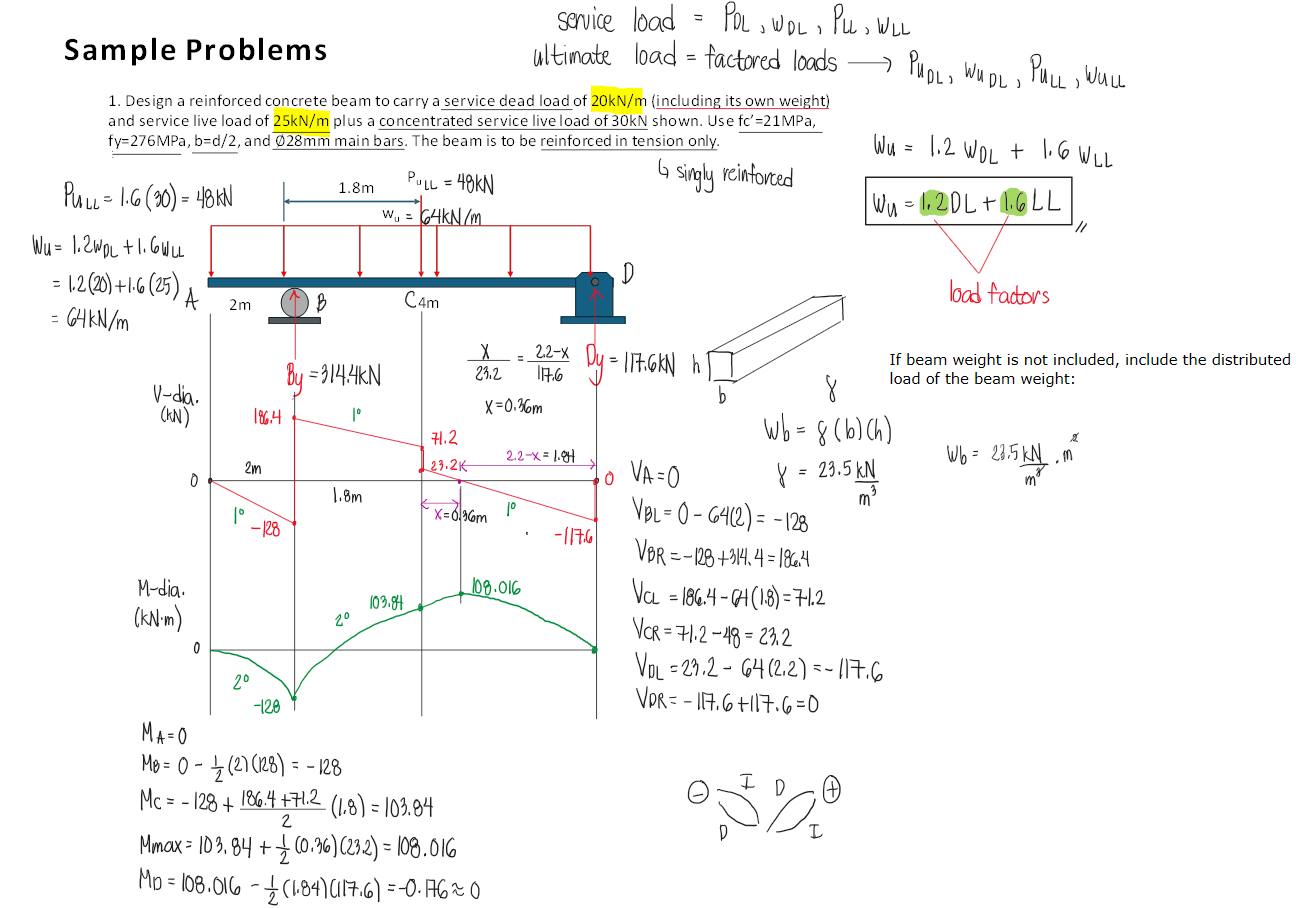 service load = PDL, wDL, PLL, wLL
Sample Problems
ultimate load = factored loads → PuDL, wuDL, PuLL, wuLL
1. Design a reinforced concrete beam to carry a service dead load of 20kN/m (including its own weight)
and service live load of 25kN/m plus a concentrated service live load of 30kN shown. Use fc'=21MPa,
fy=276MPa, b=d/2, and Ø28mm main bars. The beam is to be reinforced in tension only.
↳ singly reinforced
Wu = 1.2 WDL + 1.6 WLL
Wu = 1.2 DL + 1.6 LL
load factors
PuLL = 1.6(30) = 48kN
Wu = 1.2WDL + 1.6WLL
= 1.2(20) + 1.6(25)
= 64kN/m
1.8m
PuLL = 48kN
wu = 64kN/m
A
2m
B
C
4m
D
By = 314.4kN
x/23.2 = 2.2-x/117.6
x = 0.36m
Dy = 117.6kN
h
b
If beam weight is not included, include the distributed
load of the beam weight:
γ
Wb = γ(b)(h)
γ = 23.5 kN/m³
Wb = 23.5 kN/m³ . m²
V-dia.
(kN)
186.4
1°
71.2
23.2
2.2-x = 1.84
0
2m
1.8m
0
1°
-128
x=0.36m
1°
-117.6
VA = 0
VBL = 0 - 64(2) = -128
VBR = -128 + 314.4 = 186.4
VCL = 186.4 - 64(1.8) = 71.2
VCR = 71.2 - 48 = 23.2
VDL = 23.2 - 64(2.2) = -117.6
VDR = -117.6 + 117.6 = 0
M-dia.
(kN·m)
103.84
108.016
2°
0
2°
-128
MA = 0
MB = 0 - 1/2 (2)(128) = -128
Mc = -128 + 186.4+71.2/2 (1.8) = 103.84
Mmax = 103.84 + 1/2 (0.36)(23.2) = 108.016
MD = 108.016 - 1/2 (1.84)(117.6) = -0.176 ≈ 0
- I D +
D I